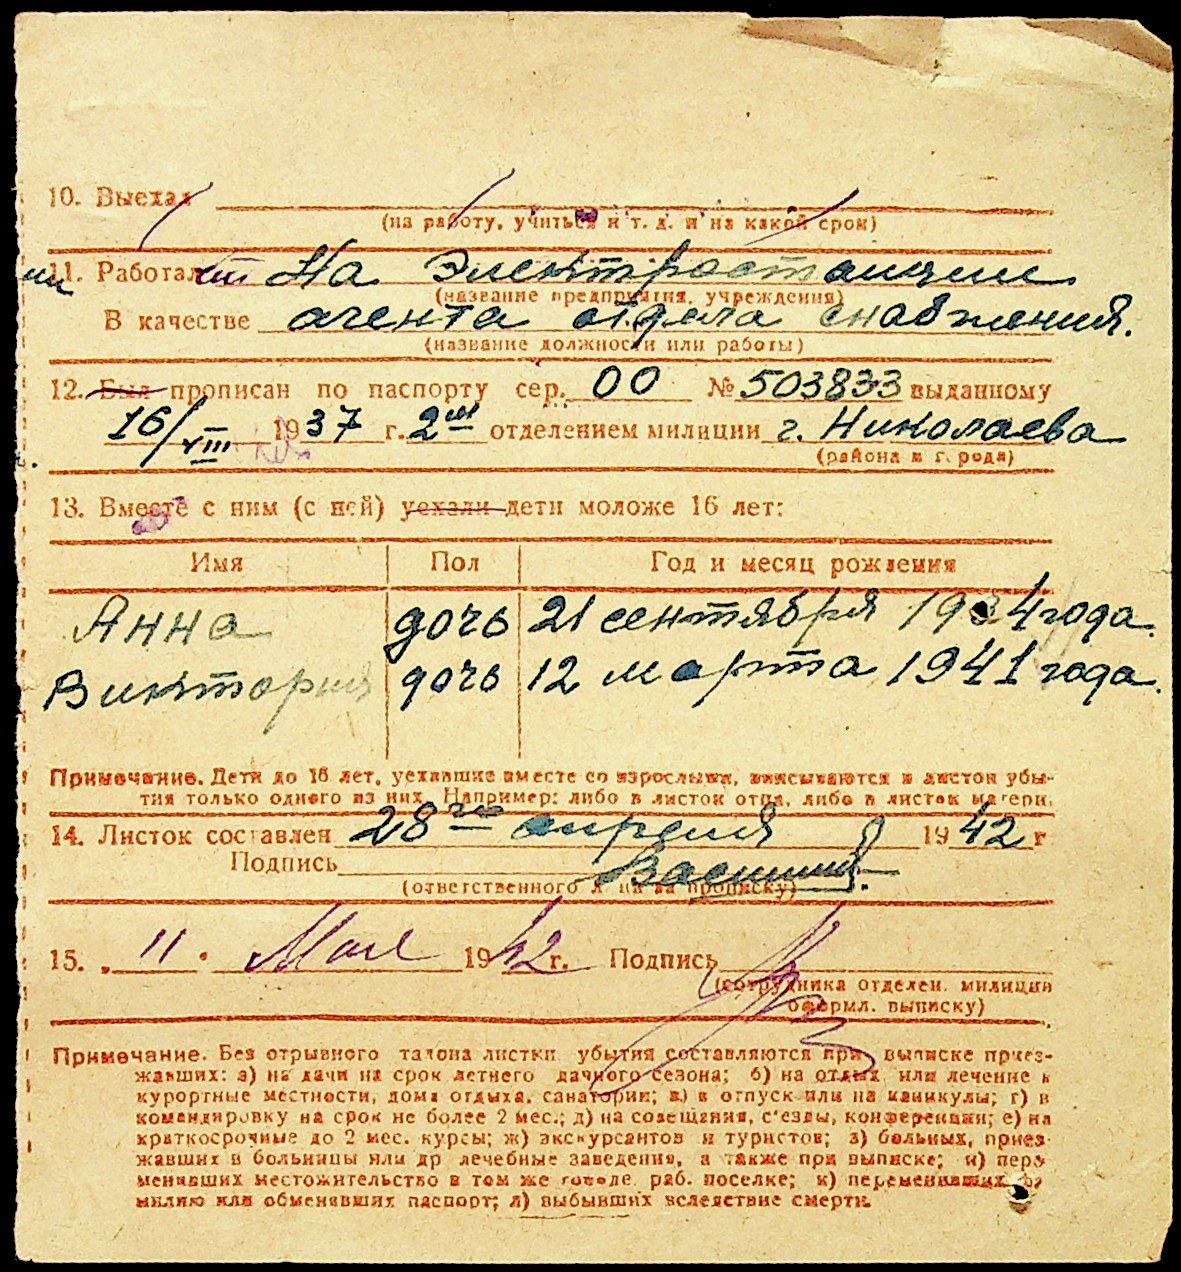 10. Выехал
(на работу, учиться и т. д. и на какой срок)
11. Работал На Электростанции
(название предприятия, учреждения)
В качестве агента отдела снабжения.
(название должности или работы)
12. Был прописан по паспорту сер. 00 № 503833 выданному
16/VIII 1937 г. 2ым отделением милиции г. Николаева
(района и города)
13. Вместе с ним (с ней) уехали дети моложе 16 лет:
Имя Пол Год и месяц рождения
Анна дочь 21 сентября 1934 года.
Виктория дочь 12 марта 1941 года.
Примечание. Дети до 16 лет, уехавшие вместе со взрослыми, вписываются в листок убы-
тия только одного из них. Например: либо в листок отца, либо в листок матери.
14. Листок составлен 28го апреля 1942 г
Подпись
(ответственного лица за прописку)
15. 11 Мая 1942 г. Подпись
(сотрудника отделен. милиции
оформл. выписку)
Примечание. Без отрывного талона листки убытия составляются при выписке приез-
жавших: а) на дачи на срок летнего дачного сезона; б) на отдых или лечение в
курортные местности, дома отдыха, санатории; в) в отпуск или на каникулы; г) в
командировку на срок не более 2 мес.; д) на совещания, с'езды, конференции; е) на
краткосрочные до 2 мес. курсы; ж) экскурсантов и туристов; з) больных, приез-
жавших в больницы или др лечебные заведения, а также при выписке; и) пере
менивших местожительство в том же городе, раб. поселке; к) переменивших фа
милию или обменявших паспорт; л) выбывших вследствие смерти.